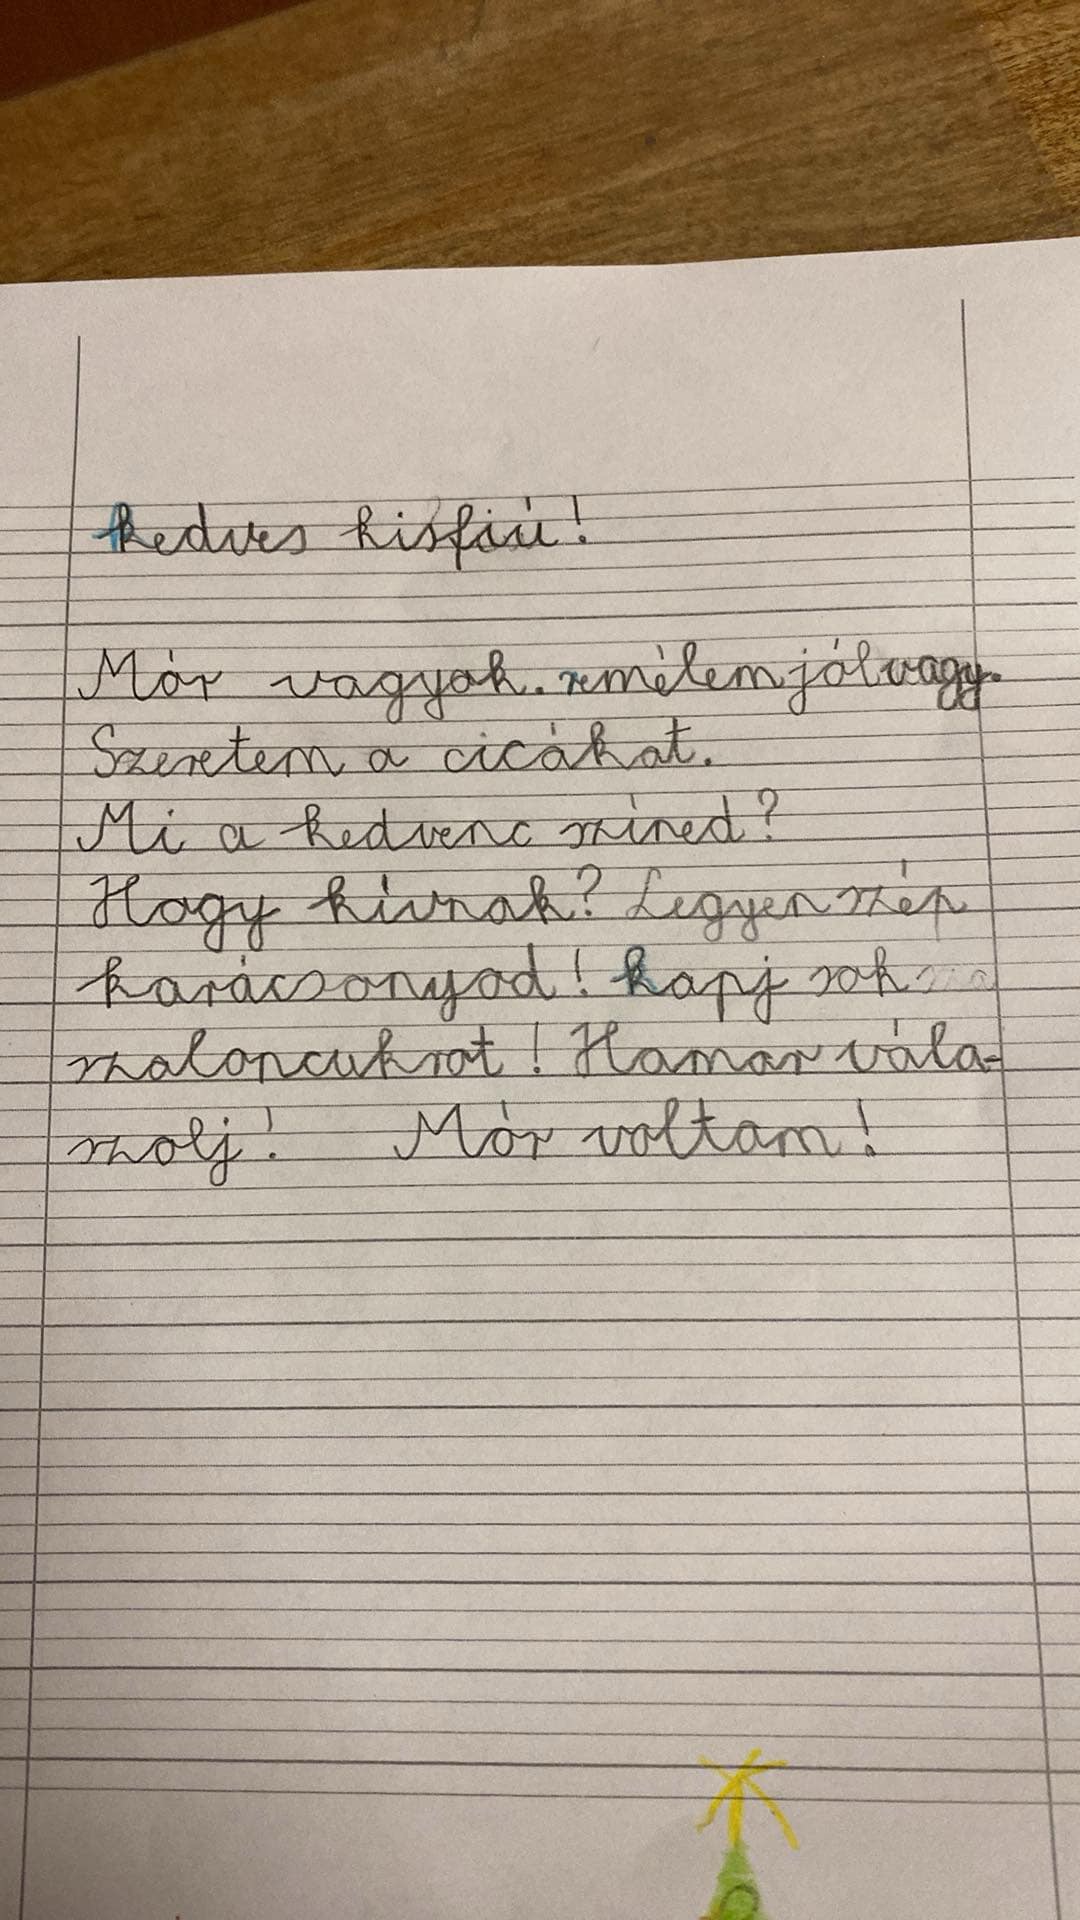 kedves kisfiú!
Mór vagyok. remélem jól vagy.
Szeretem a cicákat.
Mi a kedvenc szined?
Hogy hívnak? Legyen szép
karácsonyod! kapj sok
szaloncukrot! Hamar vála-
szolj! Mór voltam!